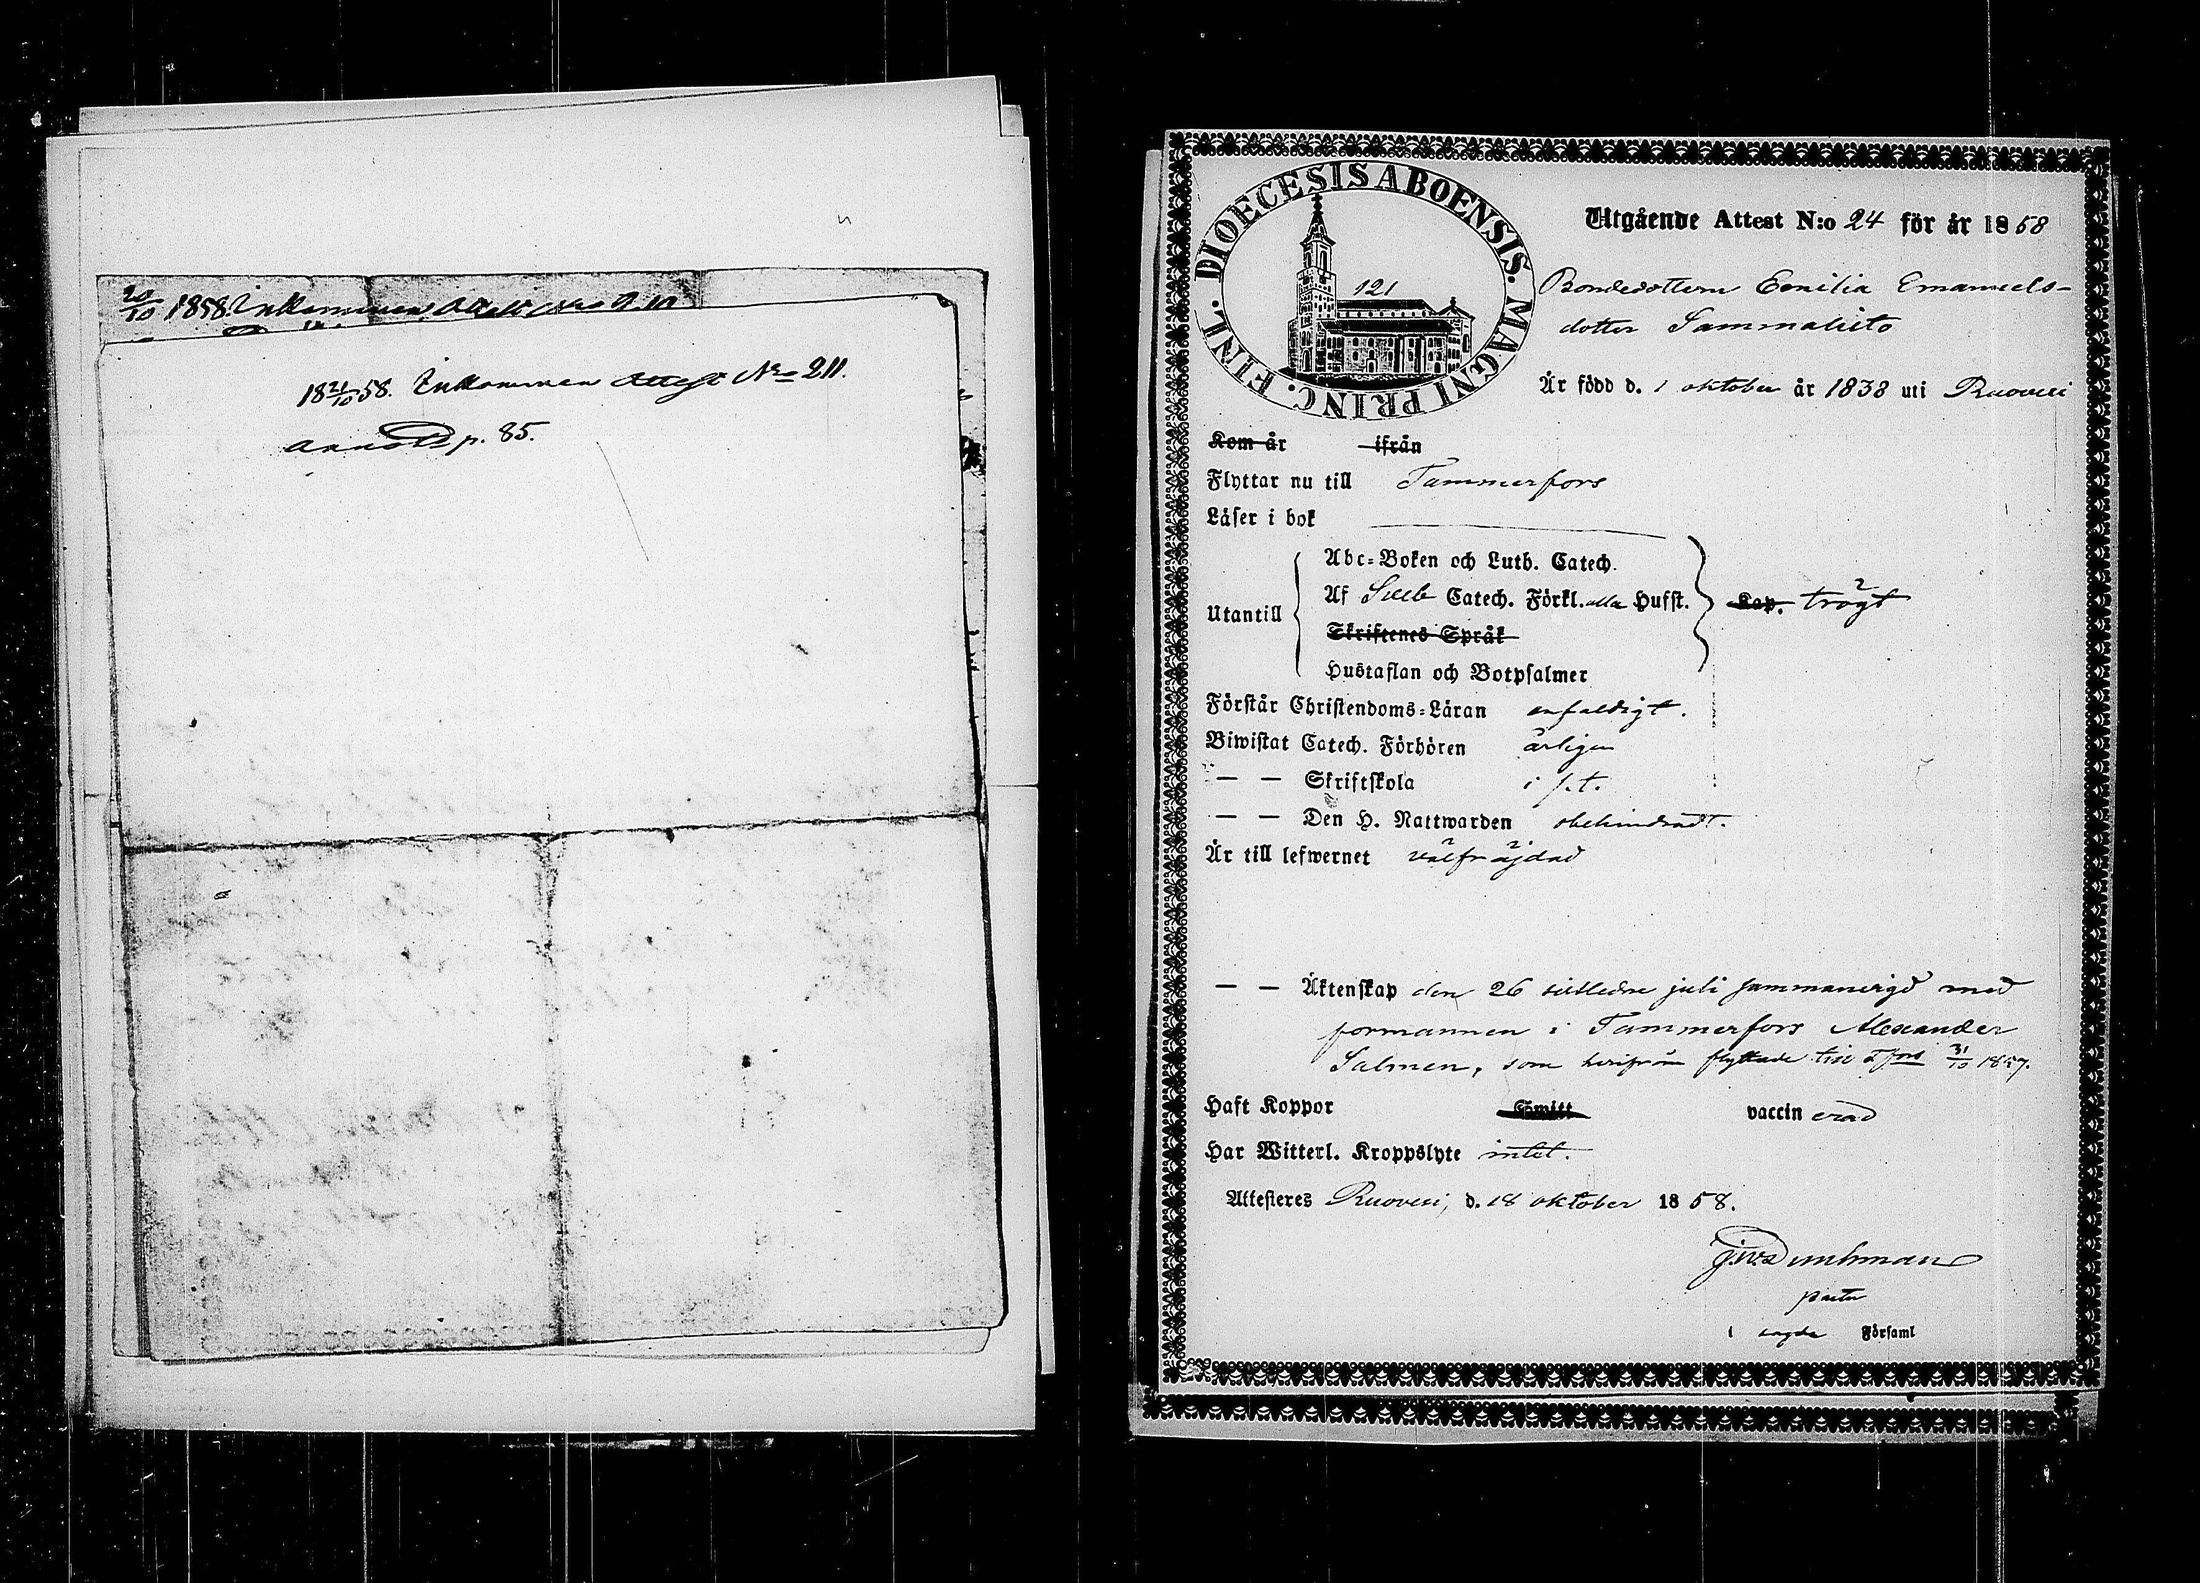 20/10 1858. Inkommen Attest No
18 21/10 58. Inkommen Attest No 211.
annot. p. 85.
DIOECESIS ABOENSIS. MAGNI PRINC. FINL.
121
Utgående Attest N:o 24 för år 1858
Bondedottern Emilia Emanuels-
dotter Sammalisto
Är född d. 1 oktober år 1838 uti Ruovesi
Kom år ifrån
Flyttar nu till Tammerfors
Läser i bok
Abc-Boken och Luth. Catech.
Utantill Af Sveb Catech. Förkl. alla Hufst. Kap. trögt
Skriftenes Språk
Hustaflan och Botpsalmer
Förstår Christendoms-Läran enfaldigt.
Biwistat Catech. Förhören årligen
— — Skriftskola i s.t.
— — Den H. Nattwarden obehindradt.
Är till lefwernet välfräjdad
— — Äktenskap den 26 sistledne juli sammanvigd med
formannen i Tammerfors Alexander
Salmen, som härifrån flyttade till T fors 31/10 1857.
Haft Koppor Smitt vaccinerad
Har Witterl. Kroppslyte intet.
Attesteres Ruovesi, d. 18 oktober 1858.
pastor
i sagde Församl